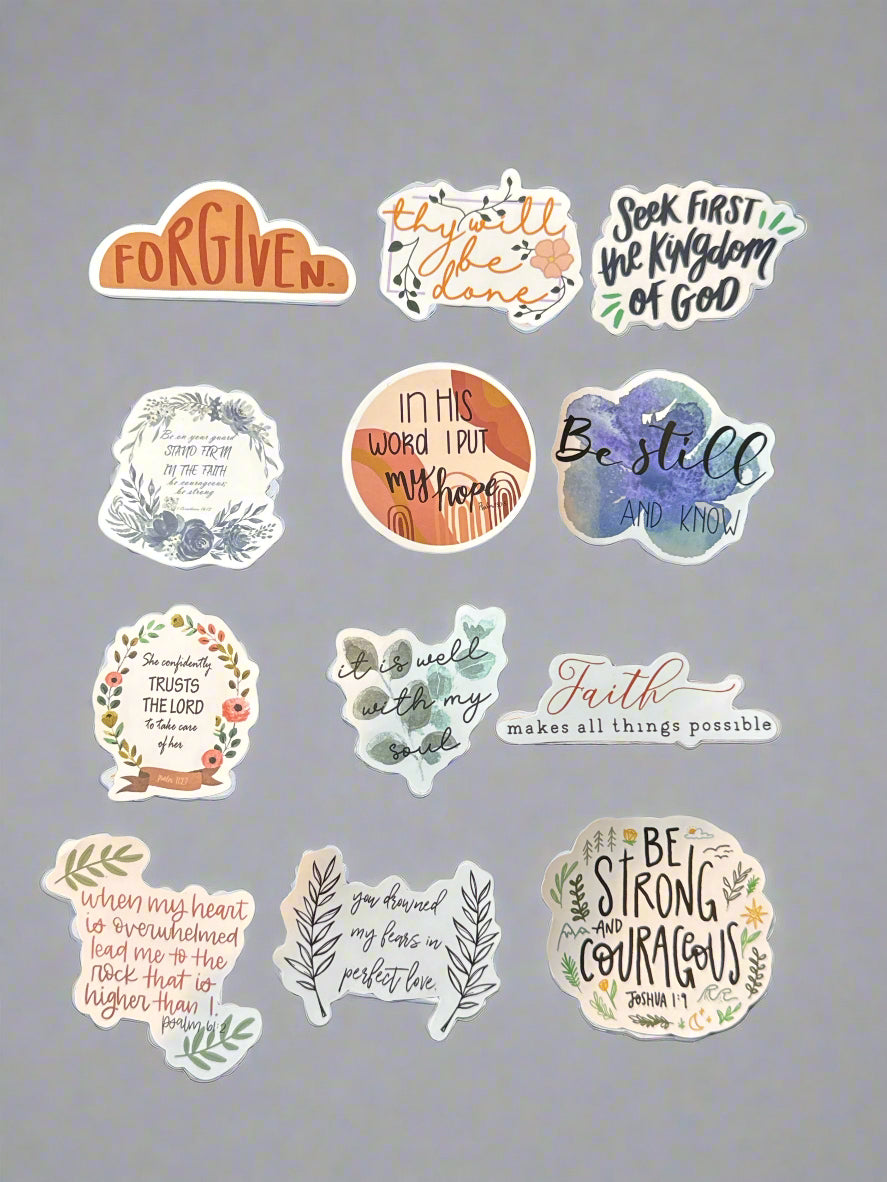 FORGIVEN.
thy will
be
done
SEEK FIRST
the KINGDOM
OF GOD
Be on your guard
STAND FIRM
IN THE FAITH
be courageous
be strong
IN HIS
WORD I PUT
my hope
Be still
AND KNOW
She confidently
TRUSTS
THE LORD
to take care
of her
psalm 112:7
it is well
with my
soul
Faith
makes all things possible
when my heart
is overwhelmed
lead me to the
rock that is
higher than I.
psalm 61:2
you drowned
my fears in
perfect love.
BE
STRONG
AND
COURAGEOUS
JOSHUA 1:9